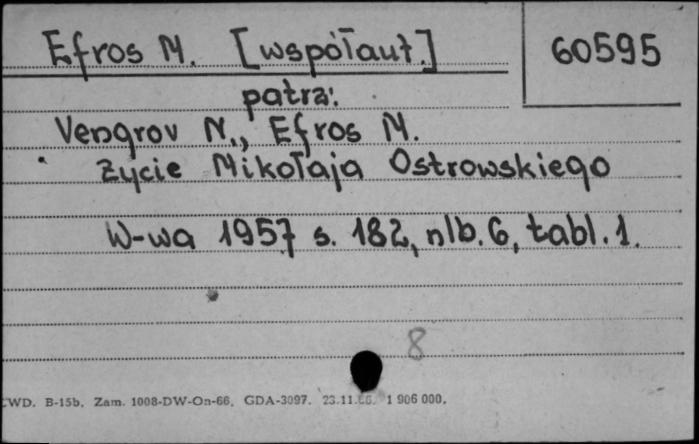 Efros M. [współaut.] 60595
patrz:
Vengrov N., Efros M.
Życie Mikołaja Ostrowskiego
W-wa 1957 s. 182, nlb. 6, tabl. 1.
8
CWD. B-15b. Zam. 1008-DW-On-66. GDA-3097. 23.11.66. 1 906 000.